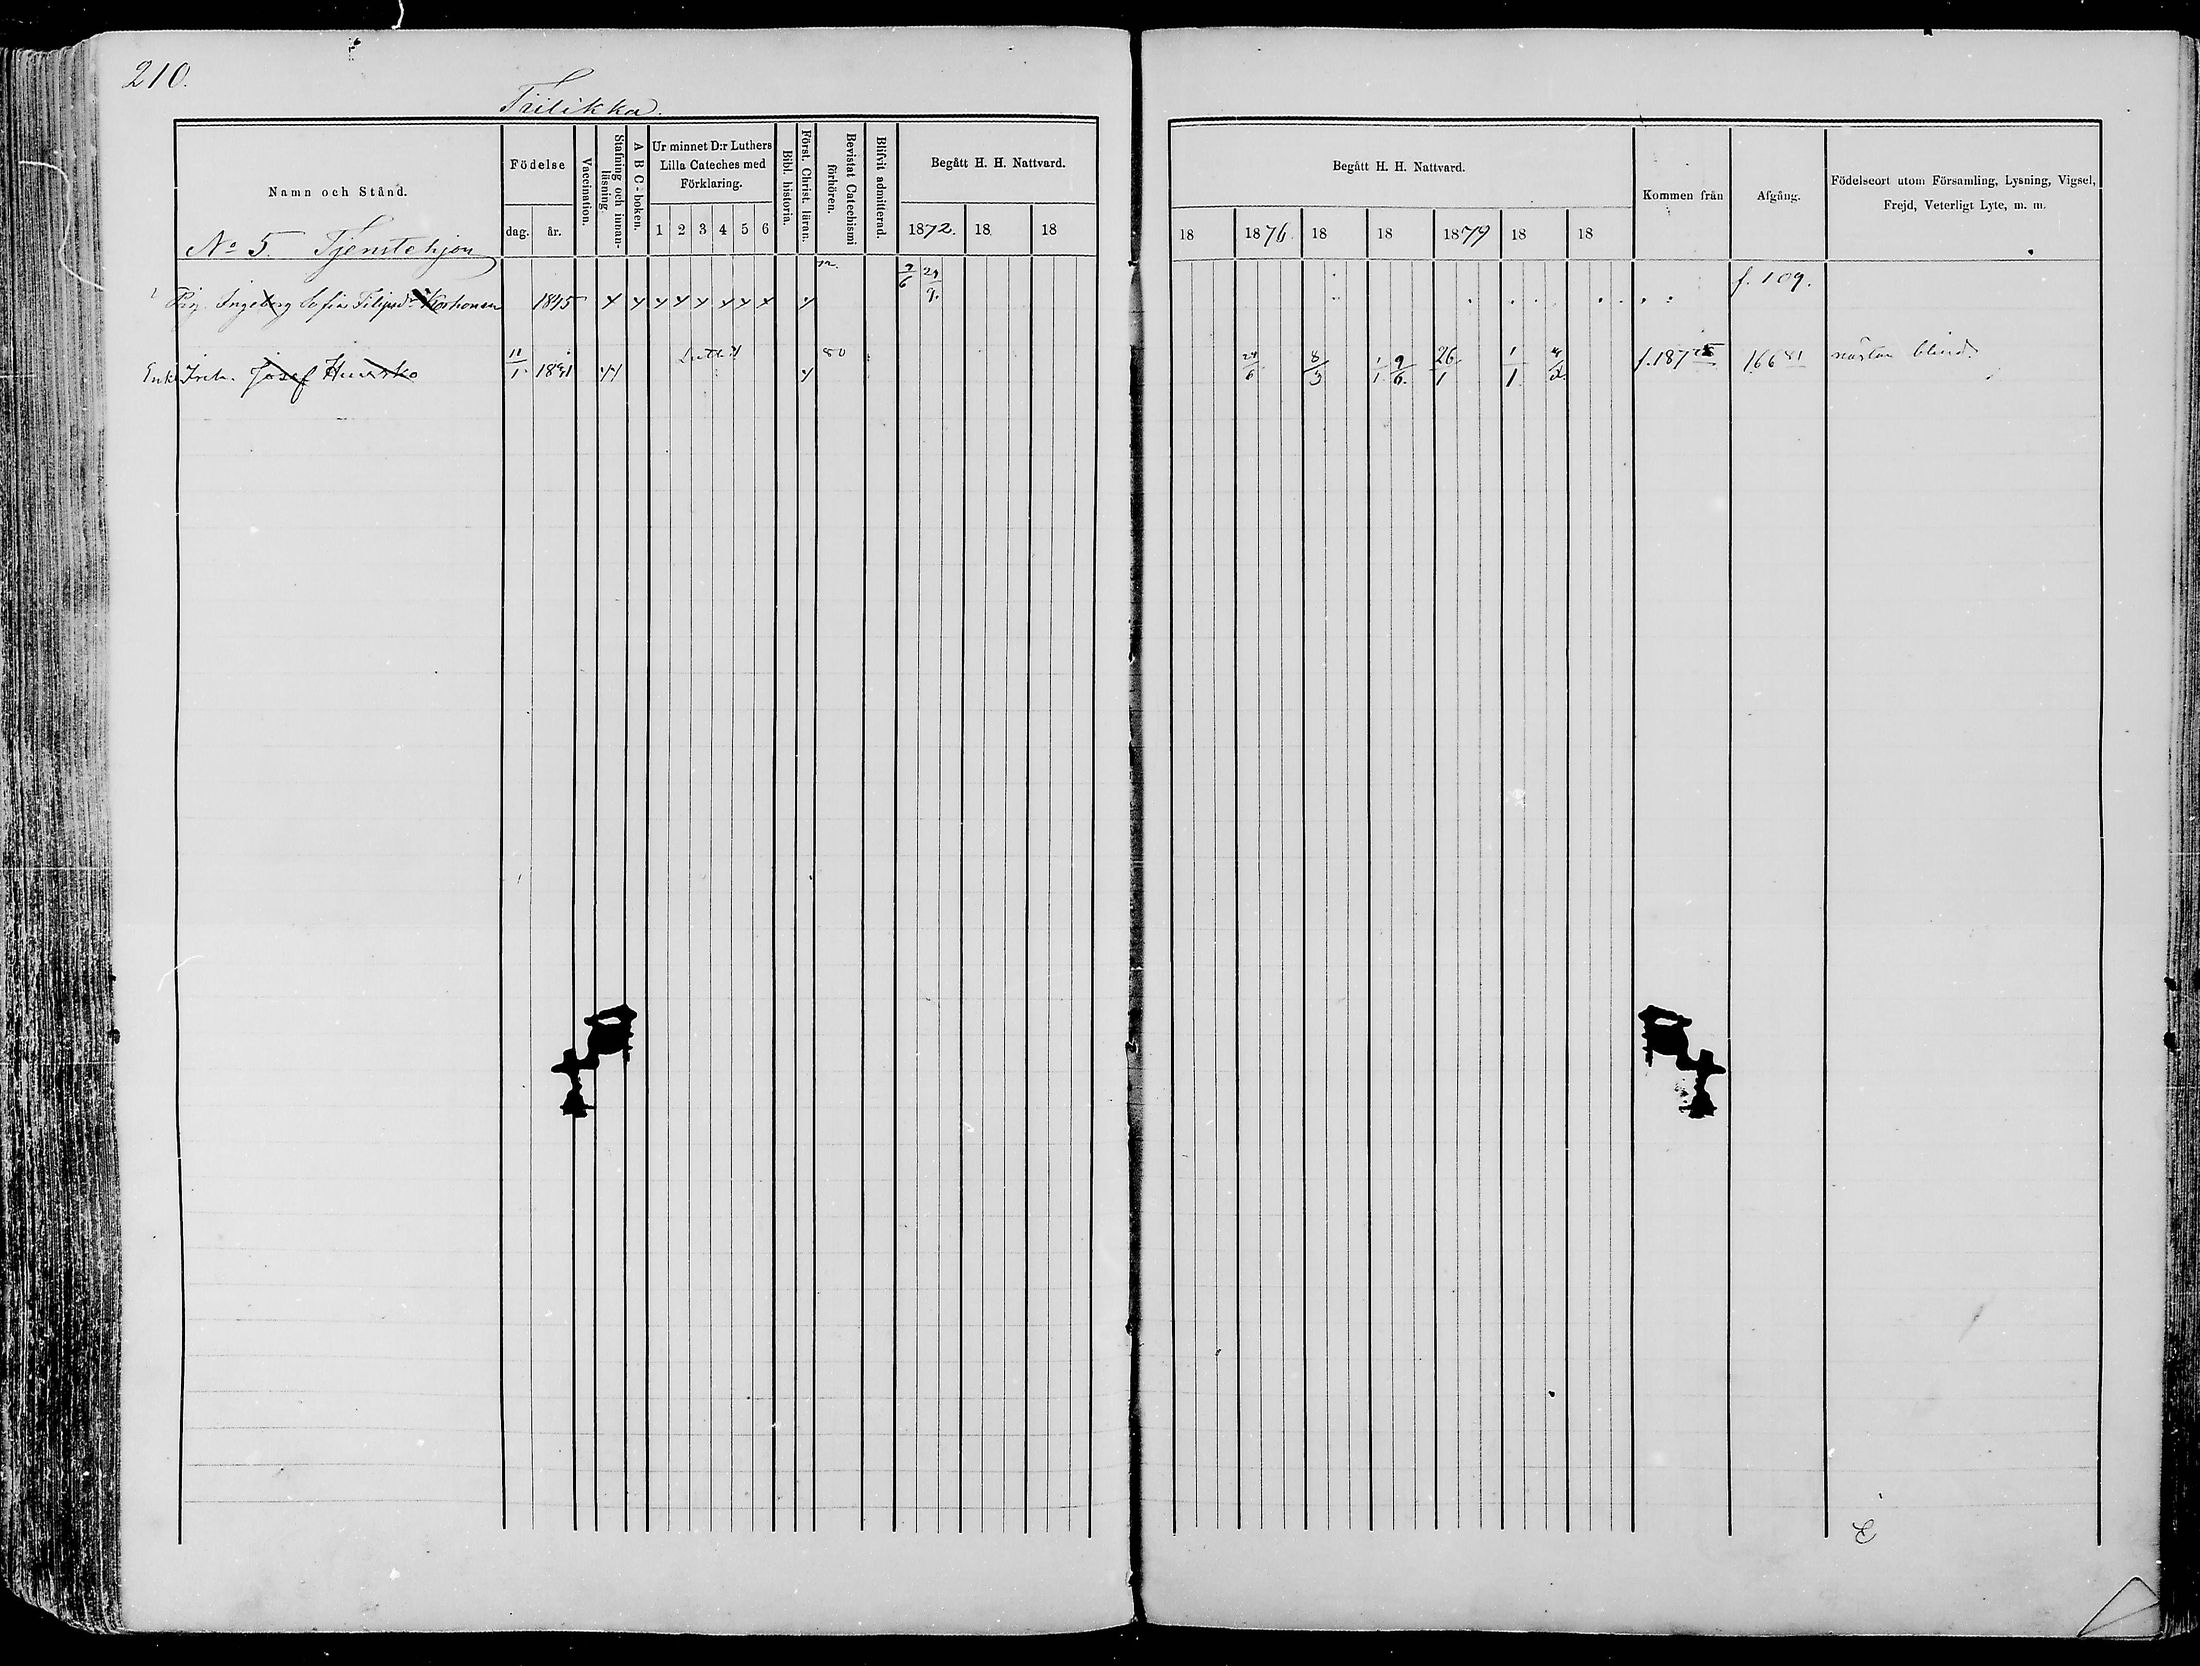 210.
Tiilikka.
Namn och Stånd.
Födelse
dag.
år.
Vaccination.
Stafning och innan-
läsning
A B C-boken.
Ur minnet D:r Luthers
Lilla Cateches med
Förklaring.
1 2 3 4 5 6
Bibl. historia.
Först. Christ. läran.
Bevistat Catechismi
förhören.
Blifvit admitterad.
Begått H. H. Nattvard.
1872. 18 18
Begått H. H. Nattvard.
18 1876. 18 18 1879 18 18
Kommen från
Afgång.
Födelseort utom Församling, Lysning, Vigsel,
Frejd, Veterligt Lyte, m. m.
No 5. Tjenstehjon
Pig. Ingeborg Sofia Filipsd. Korhonen 1845 f. 109.
Enk. Josef Huusko 11/1 80 24/6 8/3 1/1 9/6 26/1 1/1 f. 187 166 81 nästan blind.